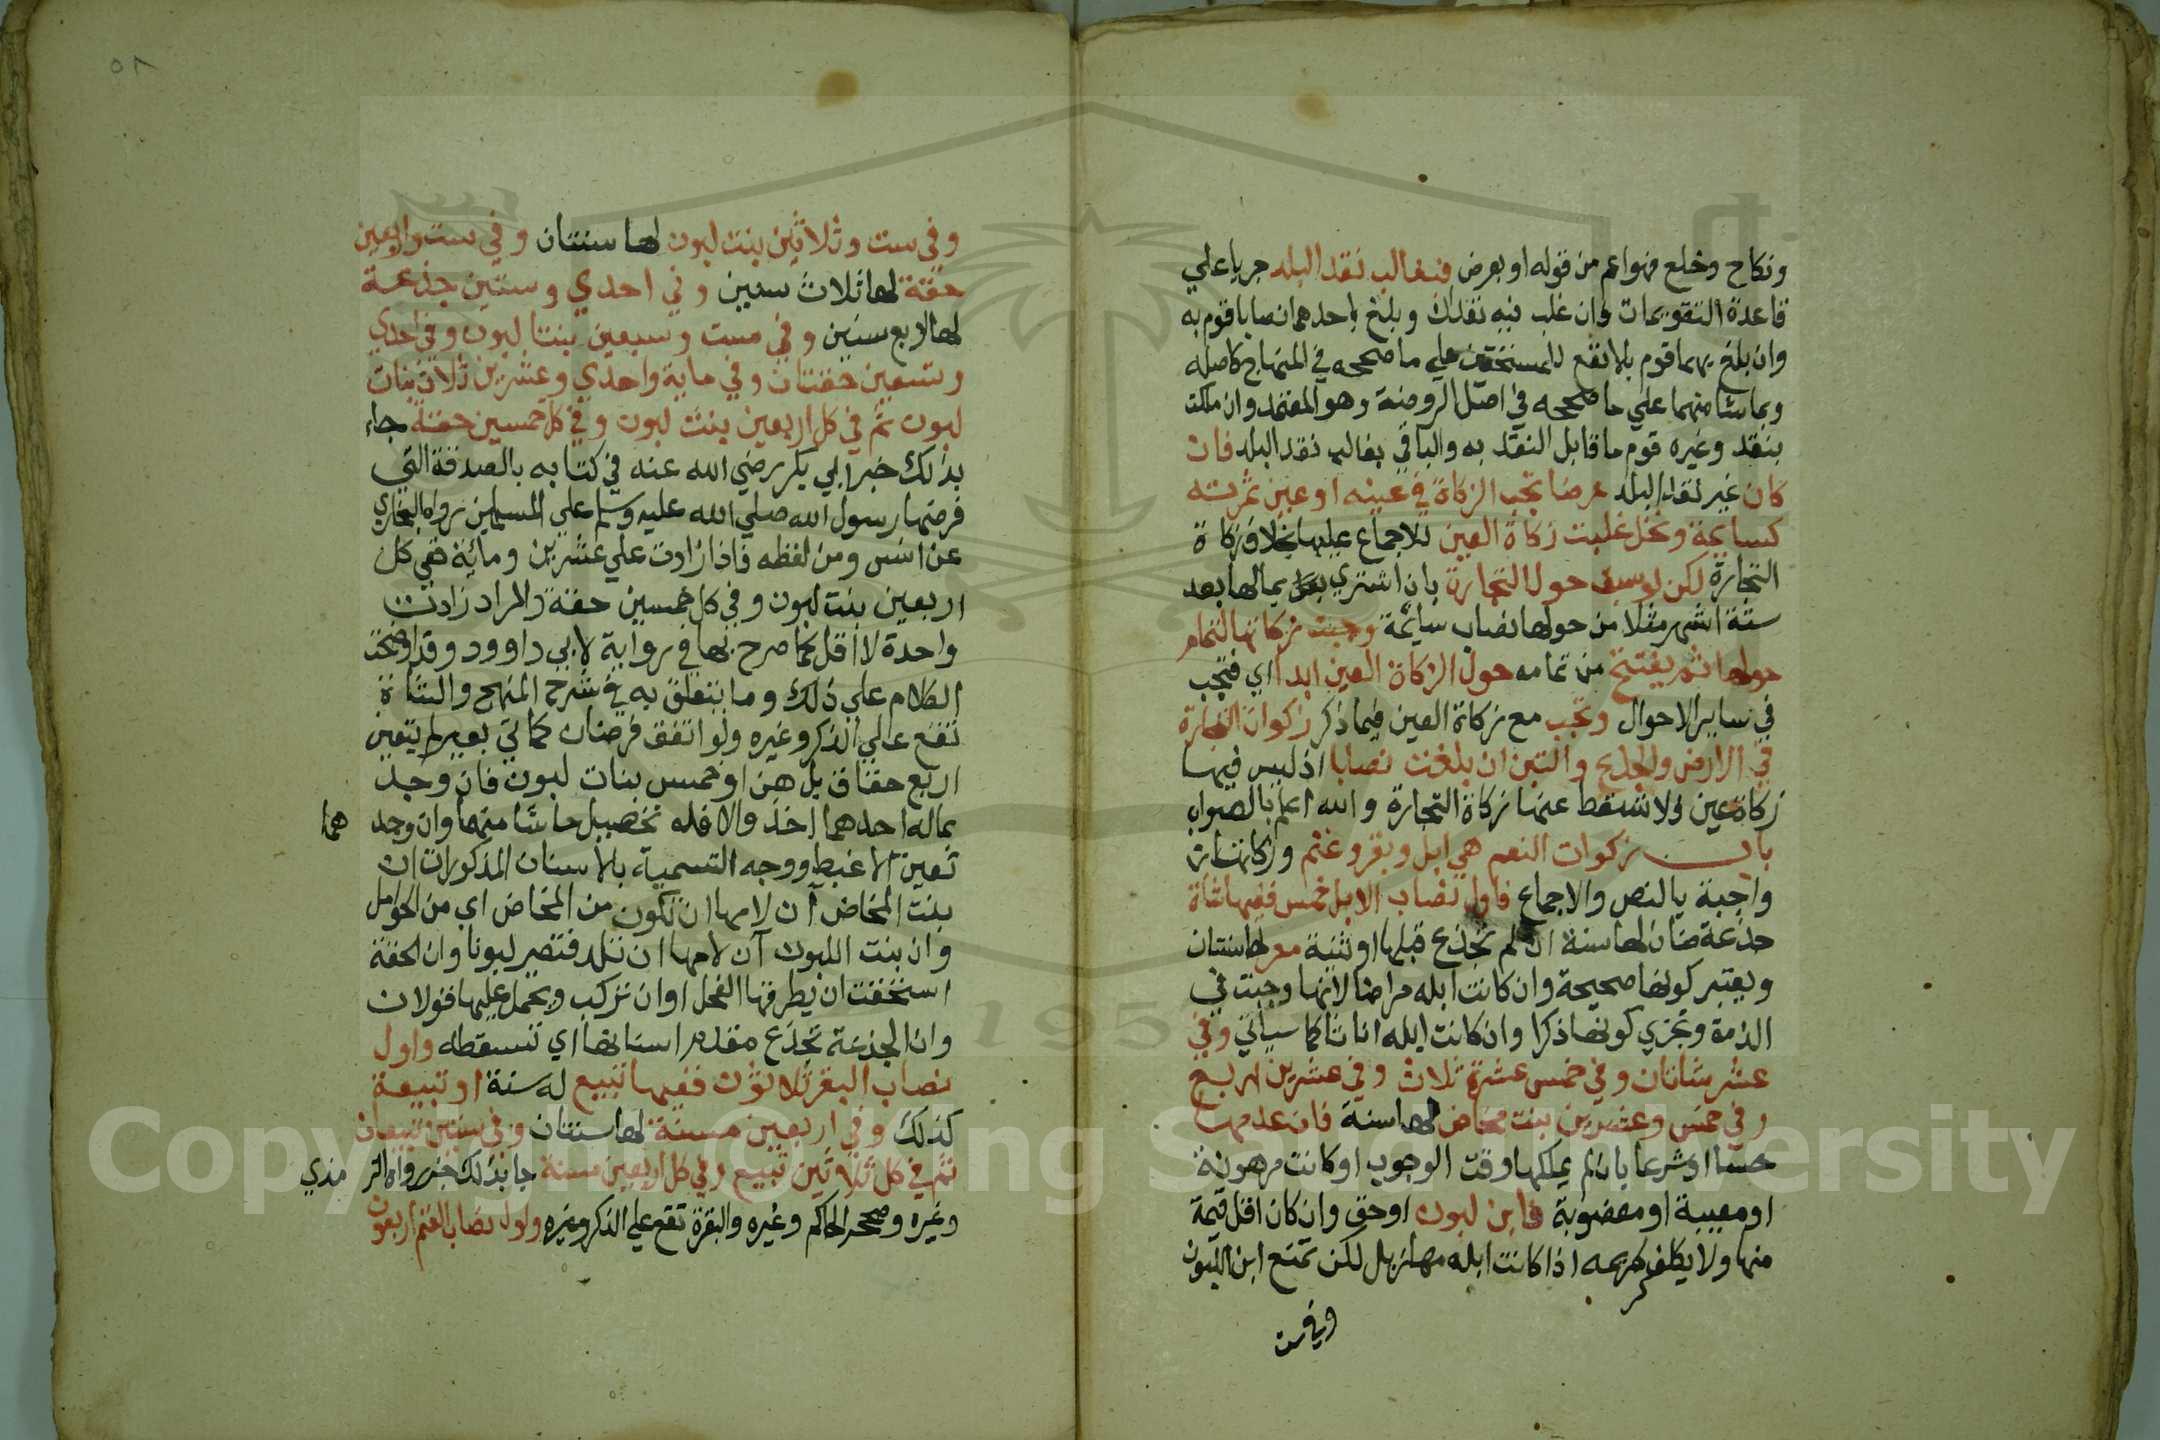 ونكاح وخلع فهو اعم من قوله او بعرض فبغالب نقد البلد جريا علي
قاعدة التقويمات وان غلب فيه نقدان وبلغ باحدهما نصابا قوم به
وان بلغ بهما قوم بالانفع للمستحقين علي ما صححه في المنهاج كاصله
وبما شا منهما علي ما صححه في اصل الروضة وهو المعتمد وان ملكت
بنقد وغيره قوم ما قابل النقد به والباقي بغالب نقد البلد فان
كان غير نقد البلد عرضا تجب الزكاة في عينه او عين ثمرته
كسايمة ونخل غلبت زكاة العين للاجماع عليها بخلاف زكاة
التجارة لكن لو سبق حول التجارة بان اشتري بمالها بعد
ستة اشهر مثلا من حولها نصاب سايمة وجبت زكاتها لتمام
حولها ثم يفتتح من تمامه حول الزكاة العين ابدا اي فتجب
في ساير الاحوال وتجب مع زكاة العين فيما ذكر زكوات التجارة
في الارض والجذع والتبن ان بلغت نصابا اذ ليس فيها
زكاة عين ولا تسقط عنها زكاة التجارة والله اعلم بالصواب
باب زكوات النعم هي ابل وبقر وغنم وزكاتها
واجبة بالنص والاجماع فاول نصاب الابل خمس ففيها شاة
جذعة ضان لها سنة ان لم تجذع قبلها او ثنية معز لها سنتان
ويعتبر كونها صحيحة وان كانت ابله مراضا لانها وجبت في
الذمة وتجزي كونها ذكرا وان كانت ابله اناثا كما سياتي وفي
عشر شاتان وفي خمس عشرة ثلاث وفي عشرين اربع
وفي خمس وعشرين بنت مخاض لها سنة فان عدمها
حسا او شرعا بان لم يملكها وقت الوجوب او كانت مرهونة
او معيبة او مغصوبة فابن لبون او حق وان كان اقل قيمة
منها ولا يكلف كريمه اذا كانت ابله مهازيل لكن تمنع ابن اللبون
وفي ست
٥٨
وفي ست وثلاثين بنت لبون لها سنتان وفي ست واربعين
حقة لها ثلاث سنين وفي احدي وستين جذعة
لها اربع سنين وفي ست وسبعين بنتا لبون وفي احدي
وتسعين حقتان وفي ماية واحدي وعشرين ثلاث بنات
لبون ثم في كل اربعين بنت لبون وفي كل خمسين حقة جاء
بذلك خبر ابي بكر رضي الله عنه في كتابه بالصدقة التي
فرضها رسول الله صلي الله عليه وسلم علي المسلمين رواه البخاري
عن انس ومن لفظه فاذا زادت علي عشرين ومائة ففي كل
اربعين بنت لبون وفي كل خمسين حقة والمراد زادت
واحدة لا اقل كما صرح بها في رواية لابي داوود وقد اوضحت
الكلام علي ذلك وما يتعلق به في شرح المنهج والشاة
تقع علي الذكر وغيره ولو اتفق فرضان كماتي بعير لم يتعين
اربع حقاق بل هن او خمس بنات لبون فان وجد
بماله احدهما اخذ والا فله تحصيل ما شا منهما وان وجد
هما
تعين الاغبط ووجه التسمية بالاسنان المذكورات ان
بنت المخاض آن لامها ان تكون من المخاض اي من الحوامل
وان بنت اللبون آن لامها ان تلد فتصير لبونا وان الحقة
استحقت ان يطرقها الفحل او ان تركب ويحمل عليها قولان
وان الجذعة تجذع مقدم اسنانها اي تسقطه واول
نصاب البقر ثلاثون ففيها تبيع له سنة او تبيعة
كذلك وفي اربعين مسنة لها سنتان وفي ستين تبيعان
ثم في كل ثلاثين تبيع وفي كل اربعين مسنة جا بذلك خبر رواه الترمذي
وغيره وصححه الحاكم وغيره والبقرة تقع علي الذكر وغيره واول نصاب الغنم اربعون